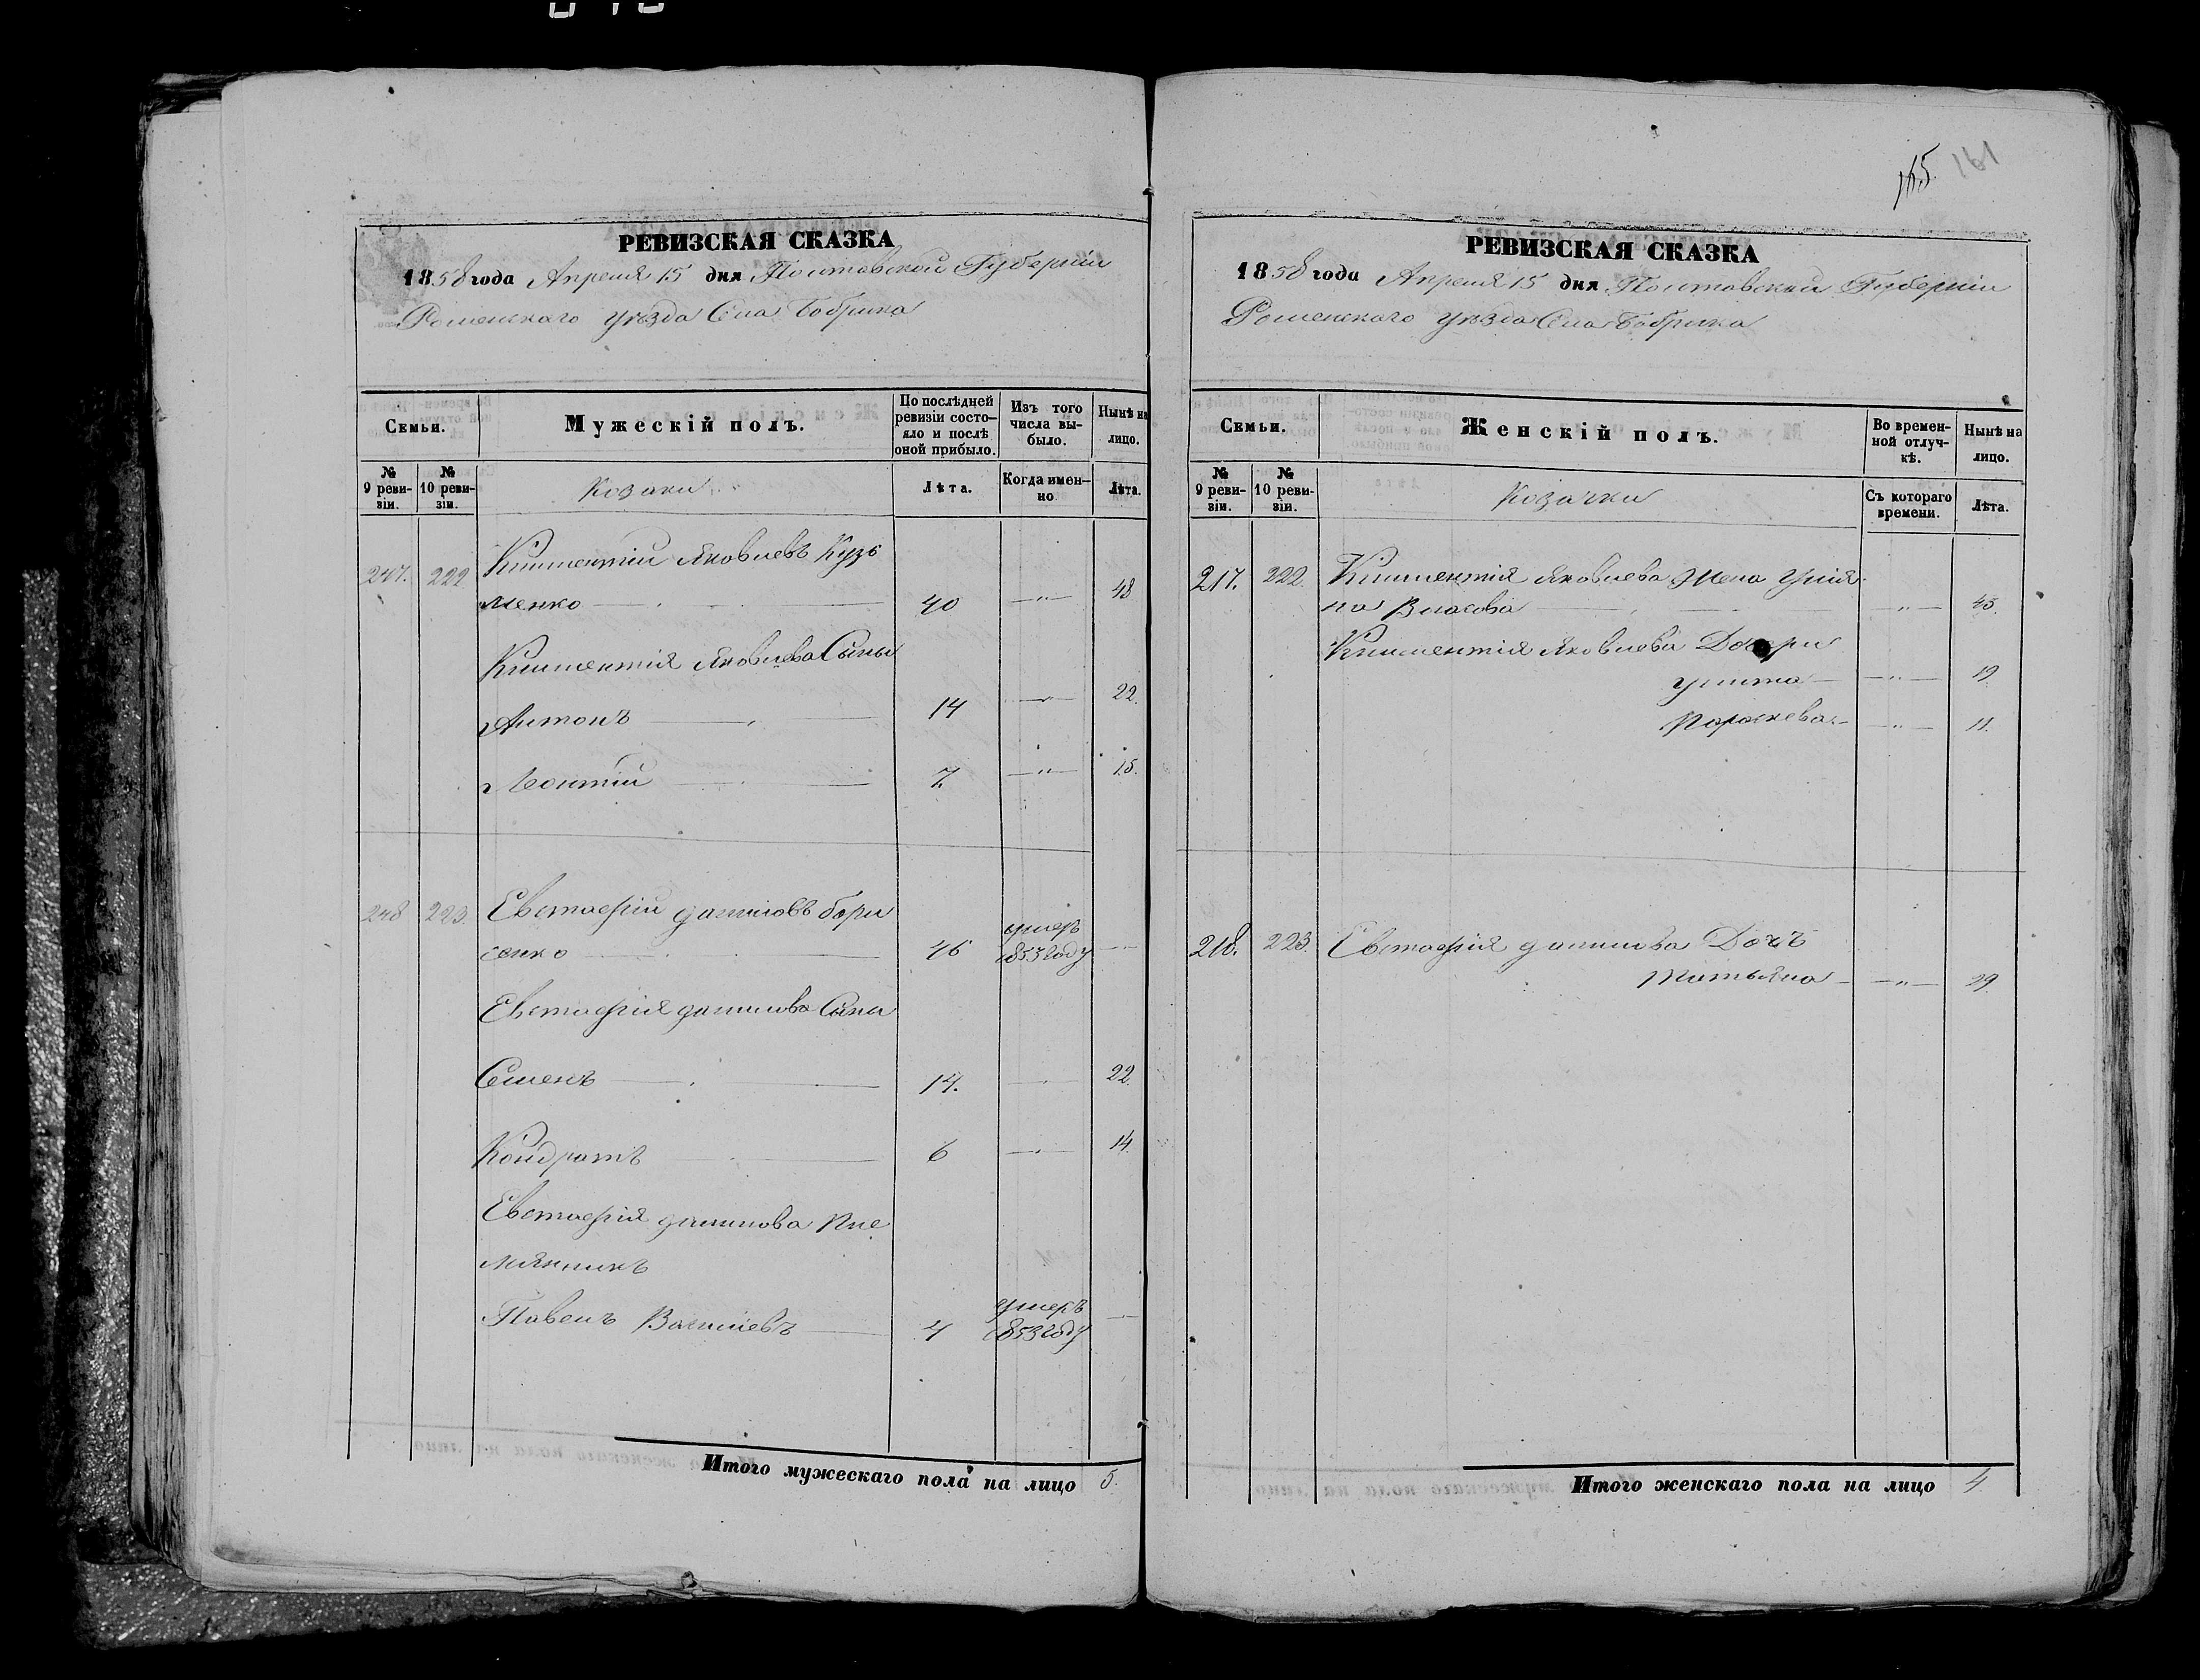 РЕВИЗСКАЯ СКАЗКА
1858 года Апреля 15 дня Полтавской Губерніи
Роменскаго уѣзда Села Бобрика
Семьи.
Мужескій полъ.
По послѣдней ревизіи состояло и послѣ оной прибыло.
Изъ того числа выбыло.
Нынѣ на лицо.
№ 9 ревизіи.
№ 10 ревизіи.
Козаки
Лѣта.
Когда именно
Лѣта.
247. 222 Климентій Яковлевъ Кузь
менко 40 — 48
Климентія Яковлева Сыны
Антонъ 14 — 22.
Леонтій 7. — 15.
248 223. Евстафій Даниловъ Бори
сенко 46 умеръ 1853 году —
Евстафія Данилова Сыны
Семенъ 14. — 22.
Кондратъ 6 — 14.
Евстафія Данилова Пле
мянникъ
Павелъ Васильевъ 4 умеръ 1853 году —
Итого мужескаго пола на лицо 5.
165. 161
РЕВИЗСКАЯ СКАЗКА
1858 года Апреля 15 дня Полтавской Губерніи
Роменскаго уѣзда Села Бобрика
Семьи.
Женскій полъ.
Во временной отлучкѣ.
Нынѣ на лицо.
№ 9 ревизіи.
№ 10 ревизіи.
Козачки
Съ котораго времени.
Лѣта.
217. 222. Климентія Яковлева Жена Улія
на Власова — 45.
Климентія Яковлева Дочери
Улита — 19
Параскева — 11.
218. 223. Евстафія Данилова Дочь
Татьяна — 29.
Итого женскаго пола на лицо 4